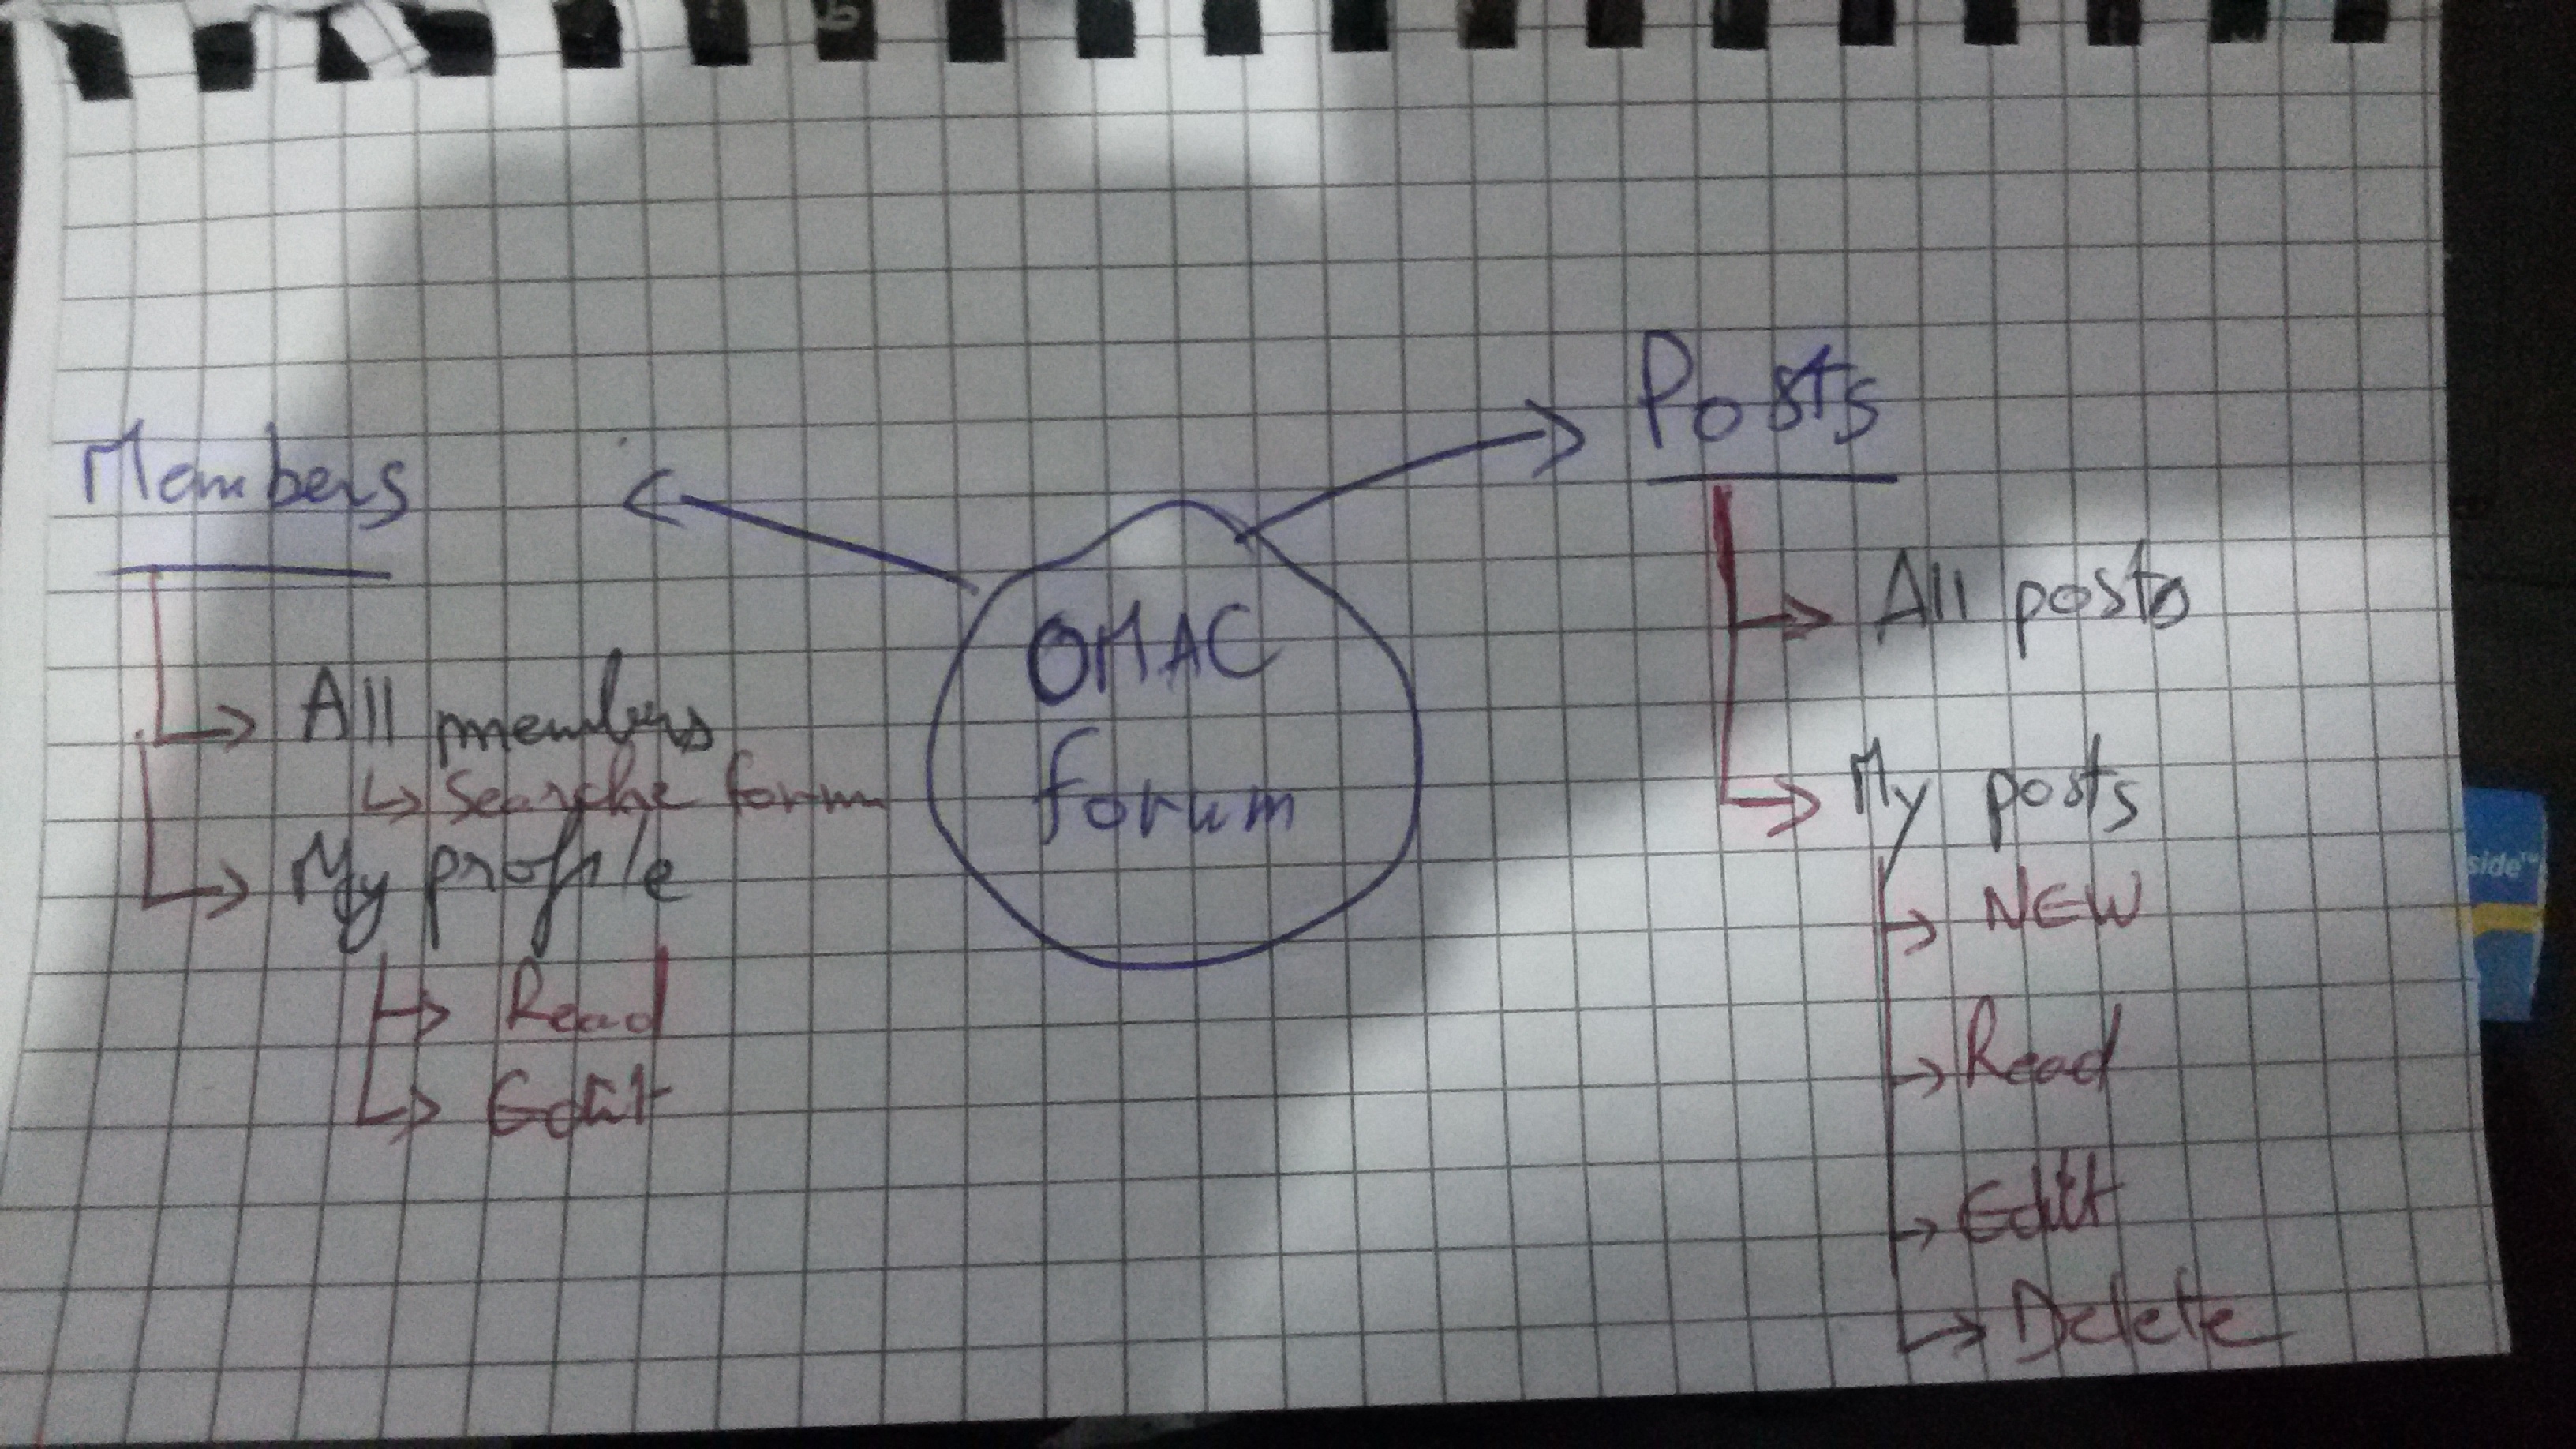 Members
All members
Searche form
My profile
Read
Edit
OMAC
forum
Posts
All posts
My posts
NEW
Read
Edit
Delete
side™